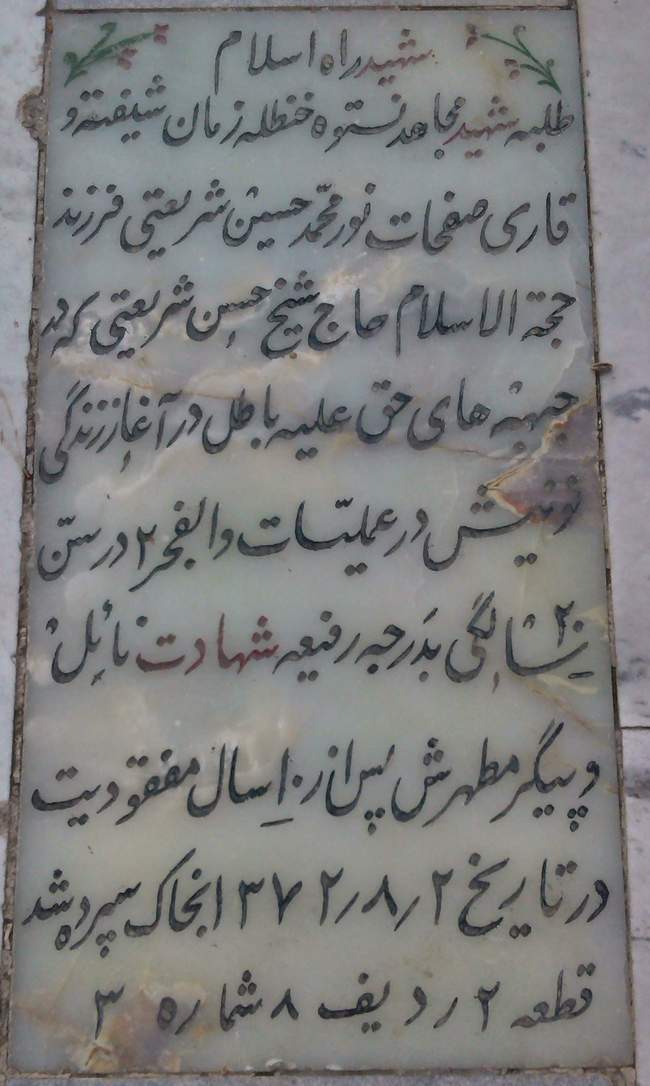 شهید راه اسلام
طلبه شهید مجاهد نستوه حنظله زمان شیفته و
قاری صفحات نور محمّد حسین شریعتی فرزند
حجة الاسلام حاج شیخ حسن شریعتی که در
جبهه های حق علیه باطل در آغاز زندگی
نوینش در عملیّات والفجر ۲ در سنّ
۲۰ سالگی بدَرجه رفیعه شهادت نائل
و پیگر مطهرش پس از ۱۰ سال مفقودیت
در تاریخ ۱۳۷۲٫۸٫۲ بخاک سپرده شد
قطعه ۲ ردیف ۸ شماره ۳